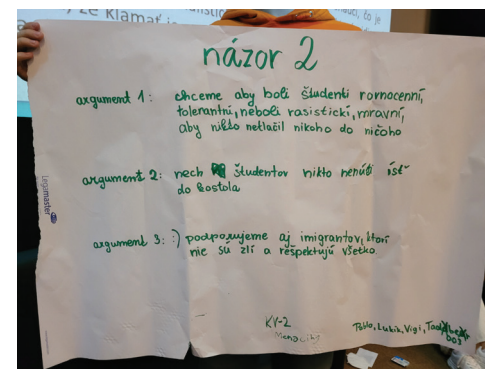 že klamať je
názor 2
argument 1: chceme aby boli študenti rovnocenní,
tolerantní, neboli rasistickí, mravní,
aby nikto netlačil nikoho do ničoho
argument 2: nech študentov nikto nenúti ísť
do kostola
argument 3: :) podporujeme aj imigrantov, ktorí
nie sú zlí a rešpektujú všetko
Legamaster
KV-2
Pablo, Lukik, Vigi,